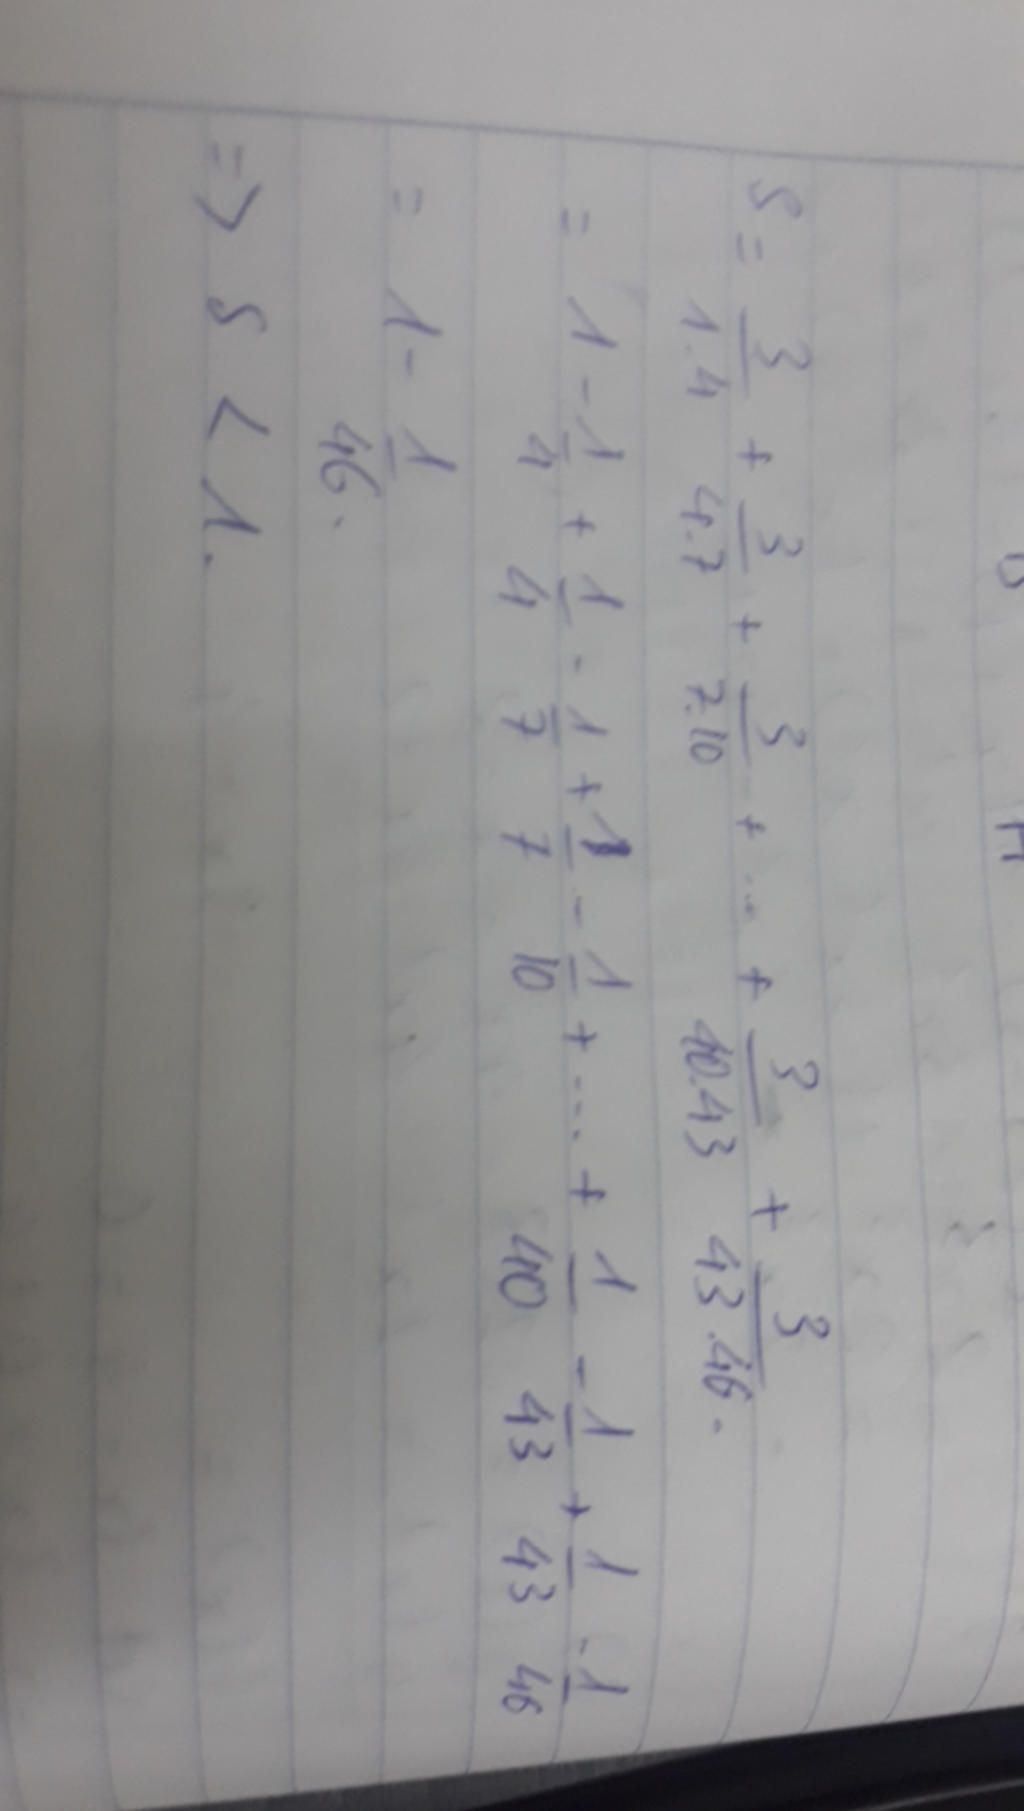 S = 3/1.4 + 3/4.7 + 3/7.10 + ... + 3/40.43 + 3/43.46.
= 1 - 1/4 + 1/4 - 1/7 + 1/7 - 1/10 + .... + 1/40 - 1/43 + 1/43 - 1/46
= 1 - 1/46.
=> S < 1.